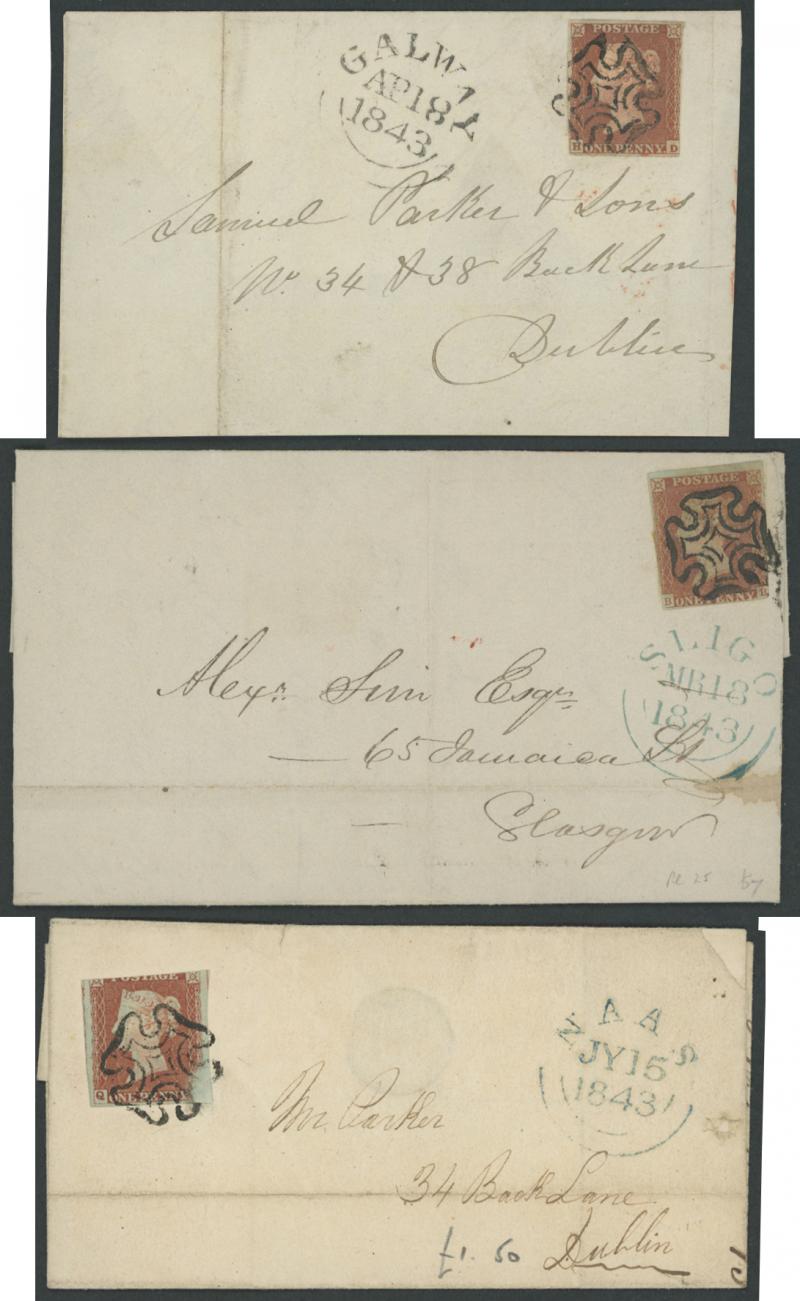 GALWAY
AP18
1843
POSTAGE
H ONE PENNY D
Samuel Parker & Sons
No. 34 & 38 Back Lane
Dublin
POSTAGE
B ONE PENNY
SLIGO
MR18
1843
Alexr. Sim Esqr
65 Jamaica St
Glasgow
POSTAGE
Q ONE PENNY
NAAS
JY15
1843
Mr. Parker
34 Back Lane
Dublin
£1.50